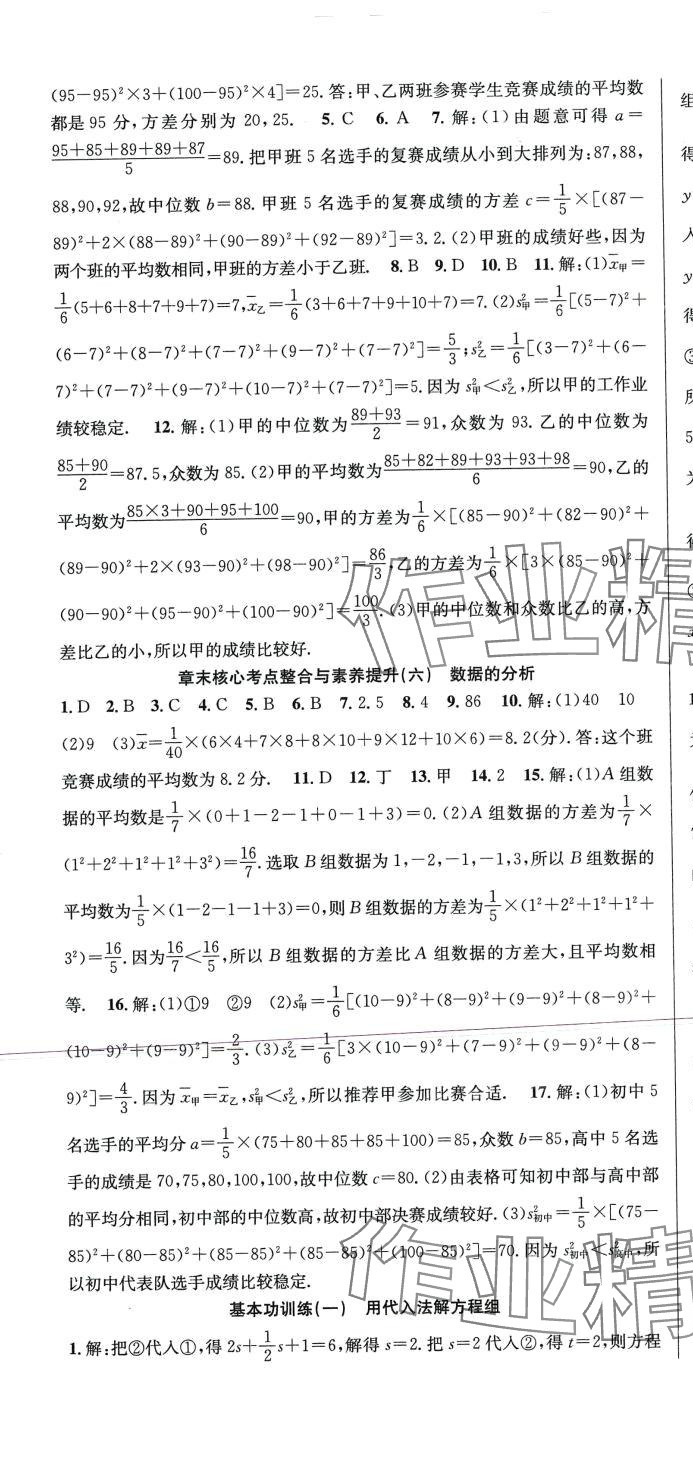 (95−95)²×3+(100−95)²×4]=25. 答:甲、乙两班参赛学生竞赛成绩的平均数
都是 95 分,方差分别为 20,25. 5. C 6. A 7. 解:(1)由题意可得 a=
(95+85+89+89+87)/5=89. 把甲班 5 名选手的复赛成绩从小到大排列为:87,88,
88,90,92,故中位数 b=88. 甲班 5 名选手的复赛成绩的方差 c=1/5×[(87−
89)²+2×(88−89)²+(90−89)²+(92−89)²]=3.2. (2)甲班的成绩好些,因为
两个班的平均数相同,甲班的方差小于乙班. 8. B 9. D 10. B 11. 解:(1)x̄甲=
1/6(5+6+8+7+9+7)=7,x̄乙=1/6(3+6+7+9+10+7)=7. (2)s²甲=1/6[(5−7)²+
(6−7)²+(8−7)²+(7−7)²+(9−7)²+(7−7)²]=5/3;s²乙=1/6[(3−7)²+(6−
7)²+(7−7)²+(9−7)²+(10−7)²+(7−7)²]=5. 因为 s²甲<s²乙,所以甲的工作业
绩较稳定. 12. 解:(1)甲的中位数为(89+93)/2=91,众数为 93. 乙的中位数为
(85+90)/2=87.5,众数为 85. (2)甲的平均数为(85+82+89+93+93+98)/6=90,乙的
平均数为(85×3+90+95+100)/6=90,甲的方差为1/6×[(85−90)²+(82−90)²+
(89−90)²+2×(93−90)²+(98−90)²]=86/3,乙的方差为1/6×[3×(85−90)²+
(90−90)²+(95−90)²+(100−90)²]=100/3. (3)甲的中位数和众数比乙的高,方
差比乙的小,所以甲的成绩比较好.
章末核心考点整合与素养提升(六) 数据的分析
1. D 2. B 3. C 4. C 5. B 6. B 7. 2.5 8. 4 9. 86 10. 解:(1)40 10
(2)9 (3)x̄=1/40×(6×4+7×8+8×10+9×12+10×6)=8.2(分). 答:这个班
竞赛成绩的平均数为 8.2 分. 11. D 12. 丁 13. 甲 14. 2 15. 解:(1)A 组数
据的平均数是1/7×(0+1−2−1+0−1+3)=0. (2)A 组数据的方差为1/7×
(1²+2²+1²+1²+3²)=16/7. 选取 B 组数据为 1,−2,−1,−1,3,所以 B 组数据的
平均数为1/5×(1−2−1−1+3)=0,则 B 组数据的方差为1/5×(1²+2²+1²+1²+
3²)=16/5. 因为16/7<16/5,所以 B 组数据的方差比 A 组数据的方差大,且平均数相
等. 16. 解:(1)①9 ②9 (2)s²甲=1/6[(10−9)²+(8−9)²+(9−9)²+(8−9)²+
(10−9)²+(9−9)²]=2/3. (3)s²乙=1/6[3×(10−9)²+(7−9)²+(9−9)²+(8−
9)²]=4/3. 因为 x̄甲=x̄乙,s²甲<s²乙,所以推荐甲参加比赛合适. 17. 解:(1)初中 5
名选手的平均分 a=1/5×(75+80+85+85+100)=85,众数 b=85,高中 5 名选
手的成绩是 70,75,80,100,100,故中位数 c=80. (2)由表格可知初中部与高中部
的平均分相同,初中部的中位数高,故初中部决赛成绩较好. (3)s²初中=1/5×[(75−
85)²+(80−85)²+(85−85)²+(85−85)²+(100−85)²]=70. 因为 s²初中<s²高中,所
以初中代表队选手成绩比较稳定.
基本功训练(一) 用代入法解方程组
1. 解:把②代人①,得 2s+1/2s+1=6,解得 s=2. 把 s=2 代人②,得 t=2,则方程
作业精
作业精
组
得
y
人
y
得
③
所
5
为